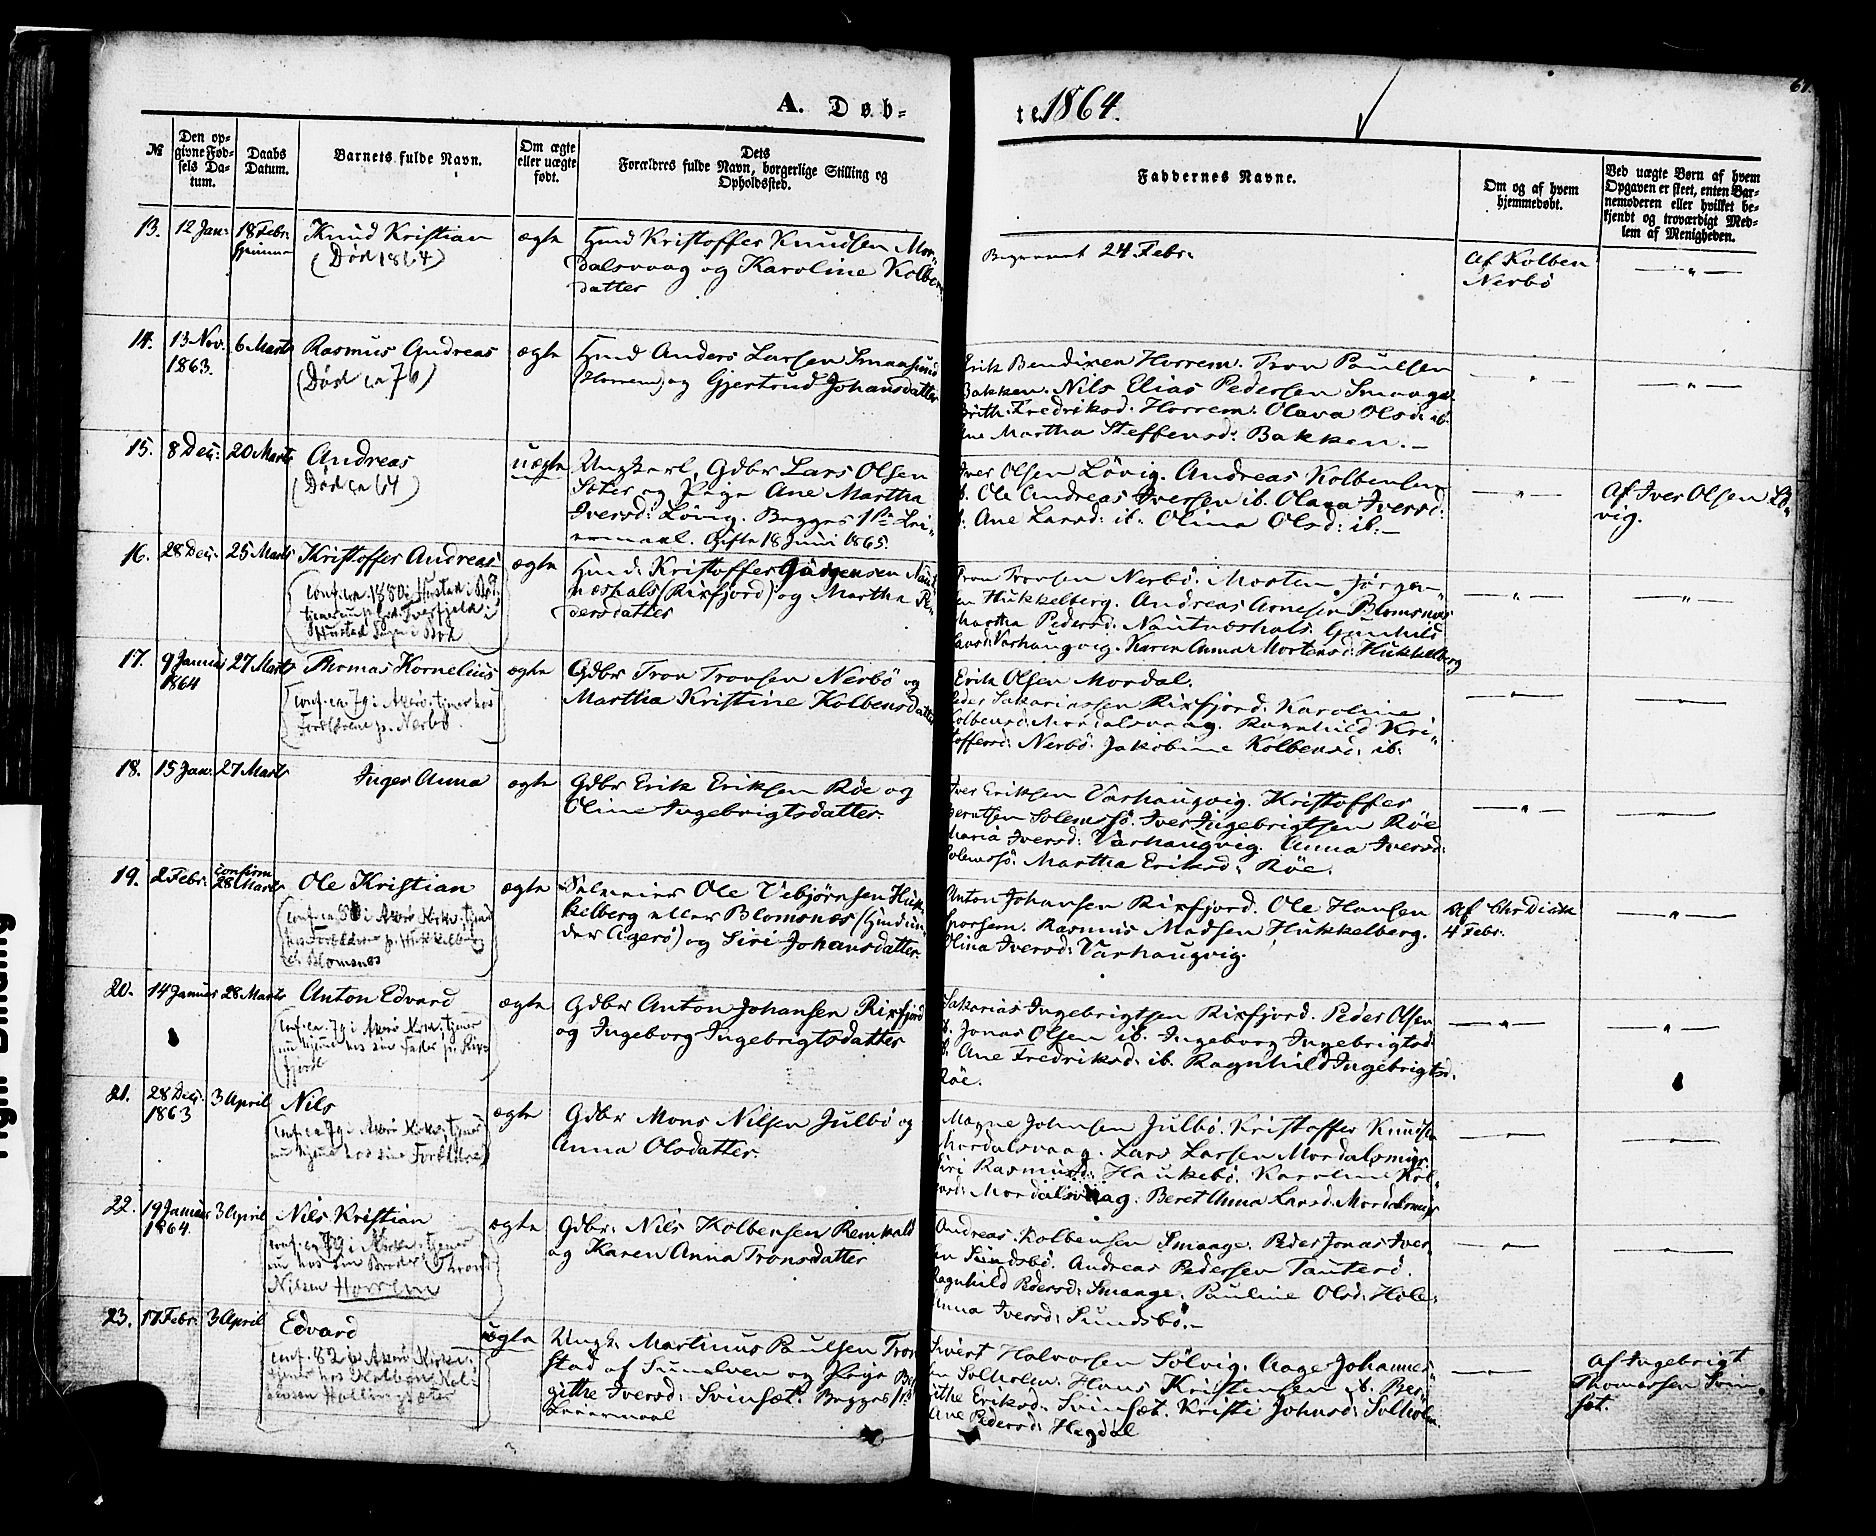 A. Døb-
te 1864.
61
№
Den op-
givne Fød-
sels Da-
tum.
Daabs
Datum.
Barnets fulde Navn.
Om ægte
eller uægte
født.
Dets
Forældres fulde Navn, borgerlige Stilling og
Opholdssted.
Faddernes Navne.
Om og af hvem
hjemmedøbt.
Ved uægte Børn af hvem
Opgaven er skeet, enten Bar-
nemoderen eller hvilket be-
kjendt og troværdigt Med-
lem af Menigheden.
13.
12 Jan:
18 Febr:
hjemme
Knud Kristian
(Død 1864)
ægte
Hmd Kristoffer Knudsen Mor-
dalsvaag og Karoline Kolbens-
datter
Begravet 24 Febr.
Af Kolben
Nerbö
14.
13 Nov.
1863.
6 Marts
Rasmus Andreas
(Død ca 76)
ægte
Hmd Anders Larsen Smaasund
(Horrem) og Gjertrud Johansdatter
Erik Bendixen Horrem. Tron Paulsen
Bakken. Nils Elias Pedersen Smaage.
Brith Fredriksd. Horrem. Olava Olsd: ib.
Ane Martha Steffensd: Bakken.
15.
8 Dec:
20 Marts
Andreas
(Død ca 64)
uægte
Ungkarl, Gdbr Lars Olsen
Sæter og Pige Ane Martha
Iversd: Lövig. Begges 1ste Lei-
ermaal. Gifte 18 Juni 1865.
Iver Olsen Lövig. Andreas Kolbensen
ib. Ole Andreas Iversen ib. Olava Iversd:
ib. Ane Larsd: ib. Olina Olsd: ib.
Af Iver Olsen Lö-
vig.
16.
28 Dec:
25 Marts
Kristoffer Andreas
(conf. ca. 1880 i Hustad i Bod
Hustad Sogn i Bod
ægte
Hmd: Kristoffer Jörgensen Naut-
næshals (Rixfjord) og Martha Pe-
dersdatter
Tron Tronsen Nerbö. Morten Jörgen-
sen Hukkelberg. Andreas Arnesen Blomsnæs
Martha Pedersd: Nautneshals. Gunhild
Larsd: Varhaugvig. Karen Anna Mortensd: Hukkelberg
17.
9 Januar
1864
27 Marts
Thomas Kornelius
(conf. ca. 79 i Akerö; tjener hos
Forældrene p. Nerbö.
ægte
Gdbr Tron Tronsen Nerbö og
Martha Kristine Kolbensdatter
Erik Olsen Mordal.
Peder Sakariassen Rixfjord. Karoline
Kolbensd: Mordalsvaag. Ragnhild Kri-
stoffersd: Nerbö. Jakobine Kolbensd: ib.
18.
15 Jan:
27 Marts
Inger Anna
ægte
Gdbr Erik Eriksen Röe og
Oline Ingebrigtsdatter.
Iver Eriksen Varhaugvig. Kristoffer
Berntsen Solemsö. Iver Ingebrigtsen Röe
Maria Iversd: Varhaugvig. Anna Iversd:
Solemsö. Martha Eriksd: Röe.
19.
2 Febr:
confirm
28 Marts
Ole Kristian
(conf. ca. 80 i Akerö Kirke, tjener
hos Forældrene p. Hukkelberg
el. Blomsnæs
ægte
Ole Vebjørnsen Huk-
kelberg eller Blomsnæs (Hmd un-
der Agerö) og Siri Johansdatter.
Anton Johansen Rixfjord. Ole Hansen
Sporsem. Rasmus Madsen Hukkelberg.
Olina Iversd: Varhaugvig.
4 Febr.
20.
14 Januar
28 Marts
Anton Edvard
(conf. ca. 79 i Akerö Kirke, tjener
nu hjemme hos sin Fader p. Rix-
fjord
ægte
Gdbr Anton Johansen Rixfjord
og Ingeborg Ingebrigtsdatter
Sakarias Ingebrigtsen Rixfjord. Peder Olsen
ib. Jonas Olsen ib. Ingeborg Ingebrigtsd:
ib. Ane Fredriksd: ib. Ragnhild Ingebrigtsd:
Röe.
21.
28 Dec:
1863
3 April
Nils
(conf. ca 79 i Akerö Kirke, tjener
nu hjemme hos sine Forældre)
ægte
Gdbr Mons Nilsen Julbö og
Anna Olsdatter.
Magne Johnsen Julbö. Kristoffer Knudsen
Mordalsvaag. Lars Larsen Mordalsmyr
Siri Rasmusd: Haukebö. Karoline Kol-
bensd: Mordalsvaag. Beret Anna Larsd: Mordalsmyr
22.
19 Januar
1864.
3 April
Nils Kristian
(conf. ca 79 i Kirke, tjener
nu hos sin Broder (Thrond
Nilsen Horrem
ægte
Gdbr: Nils Kolbensen Remkalö
og Karen Anna Tronsdatter
Andreas Kolbensen Smaage. Peder Jonas Iver-
sen Sundsbö. Andreas Pedersen Tauterö.
Ragnhild Pedersd: Smaage. Pauline Olsd: Hole.
Anna Iversd: Sundsbö.
23.
17 Febr:
3 April
Edvard
(conf. 82 i Akerö Kirke.
tjener hos Kolben Kol-
bensen Hollingsæter
uægte
Ungk. Martinus Paulsen Tron-
stad af Sunelven og Pige Be-
githe Iversd: Svinset. Begges 1ste
Leiermaal
Sivert Halvorsen Sölvig. Aage Johannes-
sen Solholm. Hans Kristensen ib. Ber-
githe Eriksd: Svinset. Kristi Johnsd: Solholm
Ane Pedersd: Hagdal
Af Ingebrigt
Thomassen Svin-
set.